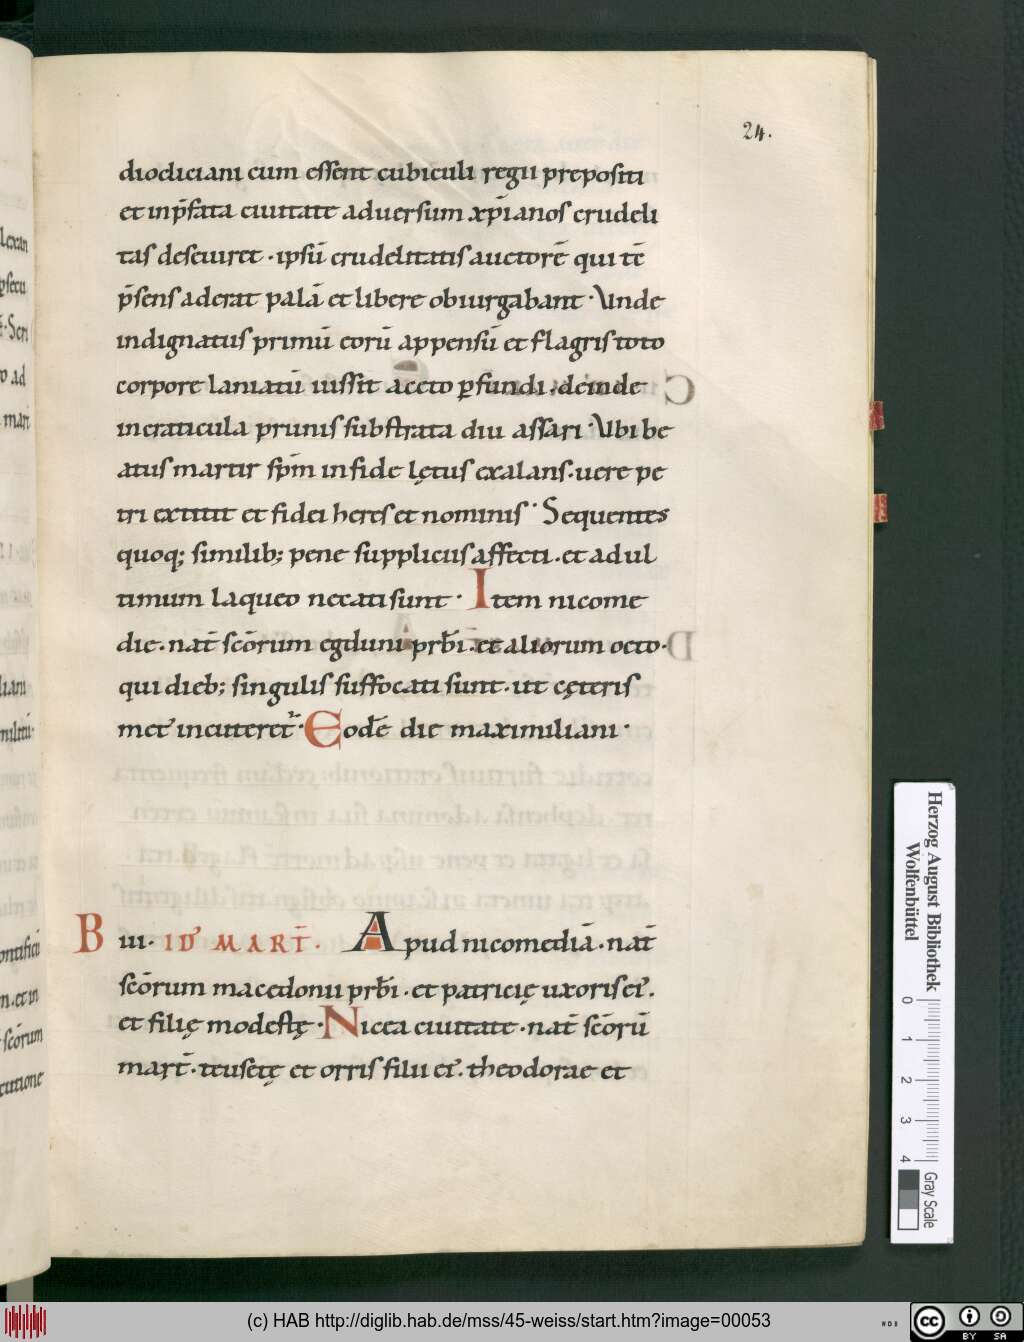 24.
diodiciani cum essent cubiculi regii prepositi
et inp̄fata ciuitate aduersum xp̄ianos crudeli
tas deseuiret · ipsū crudelitatis auctorē qui tē
p̄sens aderat palā et libere obiurgabant · Vnde
indignatus primū eorū appensū et flagris toto
corpore laniatū iussit aceto ꝑfundi . deinde
incraticula prunis substrata diu assari · Vbi be
atus martir sp̄m in fide lętus exalans . uere pe
tri extitit et fidei heres et nominis · Sequentes
quoq; similib; pene suppliciis affecti . et ad ul
timum laqueo necati sunt · Item nicome
die . nat̄ sc̄orum egduni prb̄i . et aliorum octo .
qui dieb; singulis suffocati sunt . ut cęteris
met' incuteret̄ · Eodē die maximiliani ·
B iii . ID' MART̄ . Apud nicomediā . nat̄
sc̄orum macedonii prb̄i . et patricię uxoris ei' .
et filię modestę · Nicea ciuitate . nat̄ sc̄orū
mart̄ . teusetę et orris filii ei' . theodorae et
Herzog August Bibliothek
Wolfenbüttel
0 1 2 3 4
Gray Scale
(c) HAB http://diglib.hab.de/mss/45-weiss/start.htm?image=00053
cc BY SA